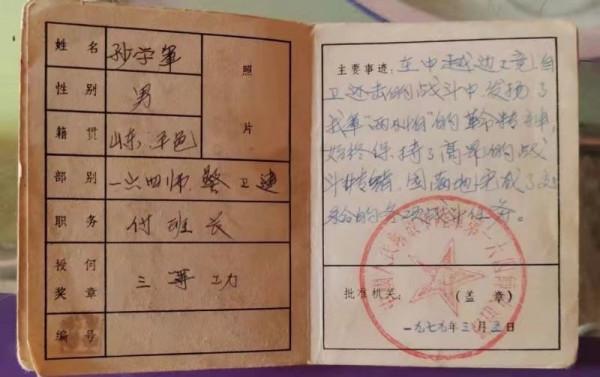 姓名 孙学军
照片
性别 男
籍贯 山东、平邑
部别 一六四师、警卫连
职务 付班长
授何奖章 三等功
编号
主要事迹：在中越边境自
卫还击的战斗中发扬了
我军“两不怕”的革命精神，
始终保持了高昂的战
斗情绪，圆满地完成了
的各项战斗任务。
批准机关： （盖章）
一九七九年三月五日